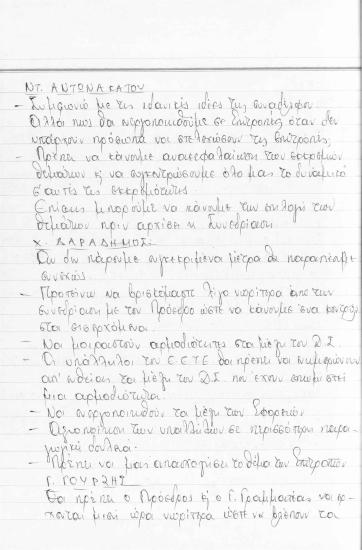 ΝΤ. ΑΝΤΩΝΑΚΑΤΟΥ
- Συμφωνώ με τις ιδανικές ιδέες της συναδέλφου.
Αλλά πως θα ενεργοποιηθούμε σε Επιτροπές όταν δεν
υπάρχουν πρόσωπα να στελεχώσουν τις Επιτροπές;
- Πρέπει να κάνουμε ανακεφαλαίωση των εκκρεμών
θεμάτων κ να συγκεντρώσουμε όλο μας το δυναμικό
σ' αυτές τις εκκρεμότητες.
Επίσης μπορούμε να κάνουμε την επιλογή των
θεμάτων πριν αρχίσει η Συνεδρίαση
Χ. ΔΑΡΑΔΗΜΟΣ:
Εάν δεν πάρουμε συγκεκριμένα μέτρα θα παραπέμπ
συνεχώς.
- Προτείνω να βρισκόμαστε λίγο νωρίτερα από την
συνεδρίαση με τον Πρόεδρο ώστε να κάνουμε ένα κοντρόλ
στα εισερχόμενα.
- Να μοιραστούν αρμοδιότητες στα μέλη του Δ.Σ.
- Οι υπάλληλοι του Ε.Ε.Τ.Ε θα πρέπει να ενημερώνουν
απ' ευθείας τα μέλη του Δ.Σ. που έχουν επωμιστεί
μια αρμοδιότητα.
- Να ενεργοποιηθούν τα μέλη των Εφορειών
- Αξιοποίηση των υπαλλήλων σε περισσότερη παρα-
γωγική δουλειά.
- Πρέπει να μας απασχολήσει το θέμα των Επιτροπών
Γ. ΓΟΥΡΖΗΣ
Θα πρέπει ο Πρόεδρος κ ο Γ. Γραμματέας να έρ-
χονται μισή ώρα νωρίτερα ώστε να βλέπουν τα